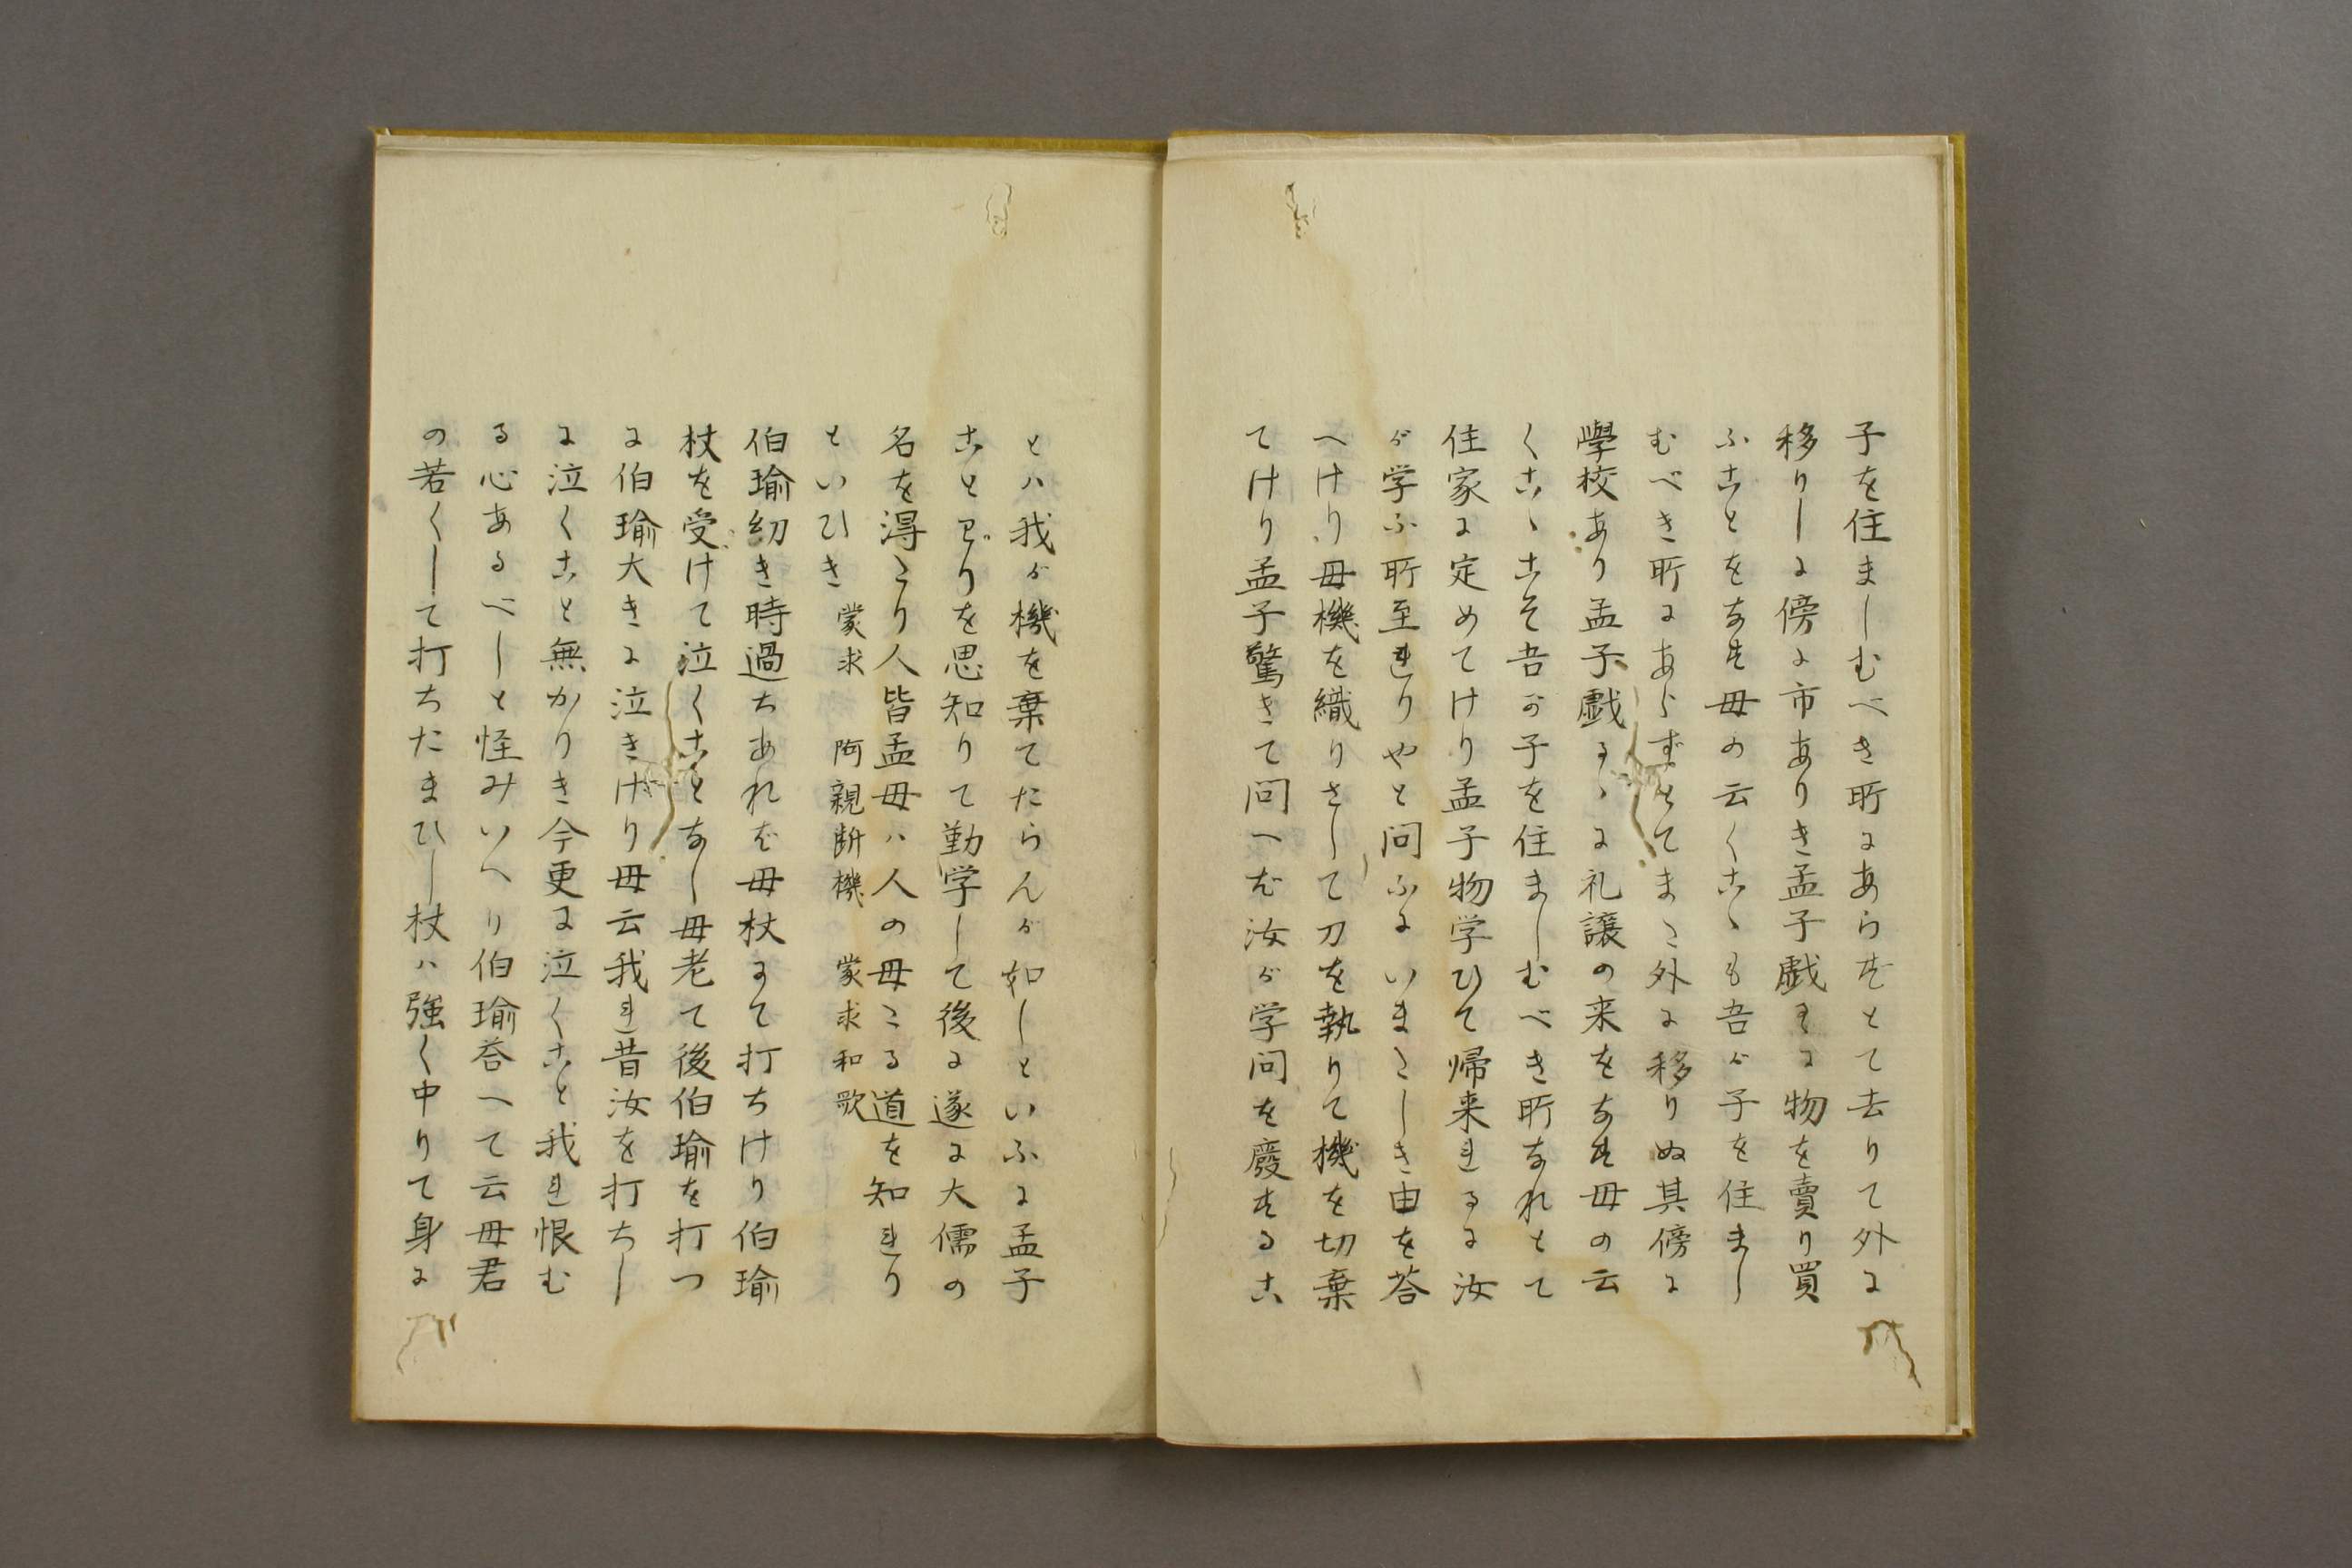 子を住ましむべき所にあらずとて去りて外に
移りしに傍に市ありき孟子戯るゝに物を賣り買
ふことをなす母の云くこゝも吾が子を住まし
むべき所にあらずとてまた外に移りぬ其傍に
學校あり孟子戯るゝに礼譲の来をなす母の云
くこゝこそ吾が子を住ましむべき所なれとて
住家に定めてけり孟子物学ひて帰来れるに汝
が学ふ所至れりやと問ふにいまたしき由を荅
へけり母機を織りさして刀を執りて機を切棄
てけり孟子驚きて問へば汝が学問を廢するこ
とハ我が機を棄てたらんが如しといふに孟子
ことわりを思知りて勤学して後に遂に大儒の
名を得たり人皆孟母ハ人の母たる道を知れり
といひき 蒙求 阿親断機 蒙求和歌
伯瑜幼き時過ちあれば母杖にて打ちけり伯瑜
杖を受けて泣くことなし母老て後伯瑜を打つ
に伯瑜大きに泣きけり母云我れ昔汝を打ちし
に泣くこと無かりき今更に泣くこと我れ恨む
る心あるべしと怪みいへり伯瑜荅へて云母君
の若くして打ちたまひし杖ハ強く中りて身に